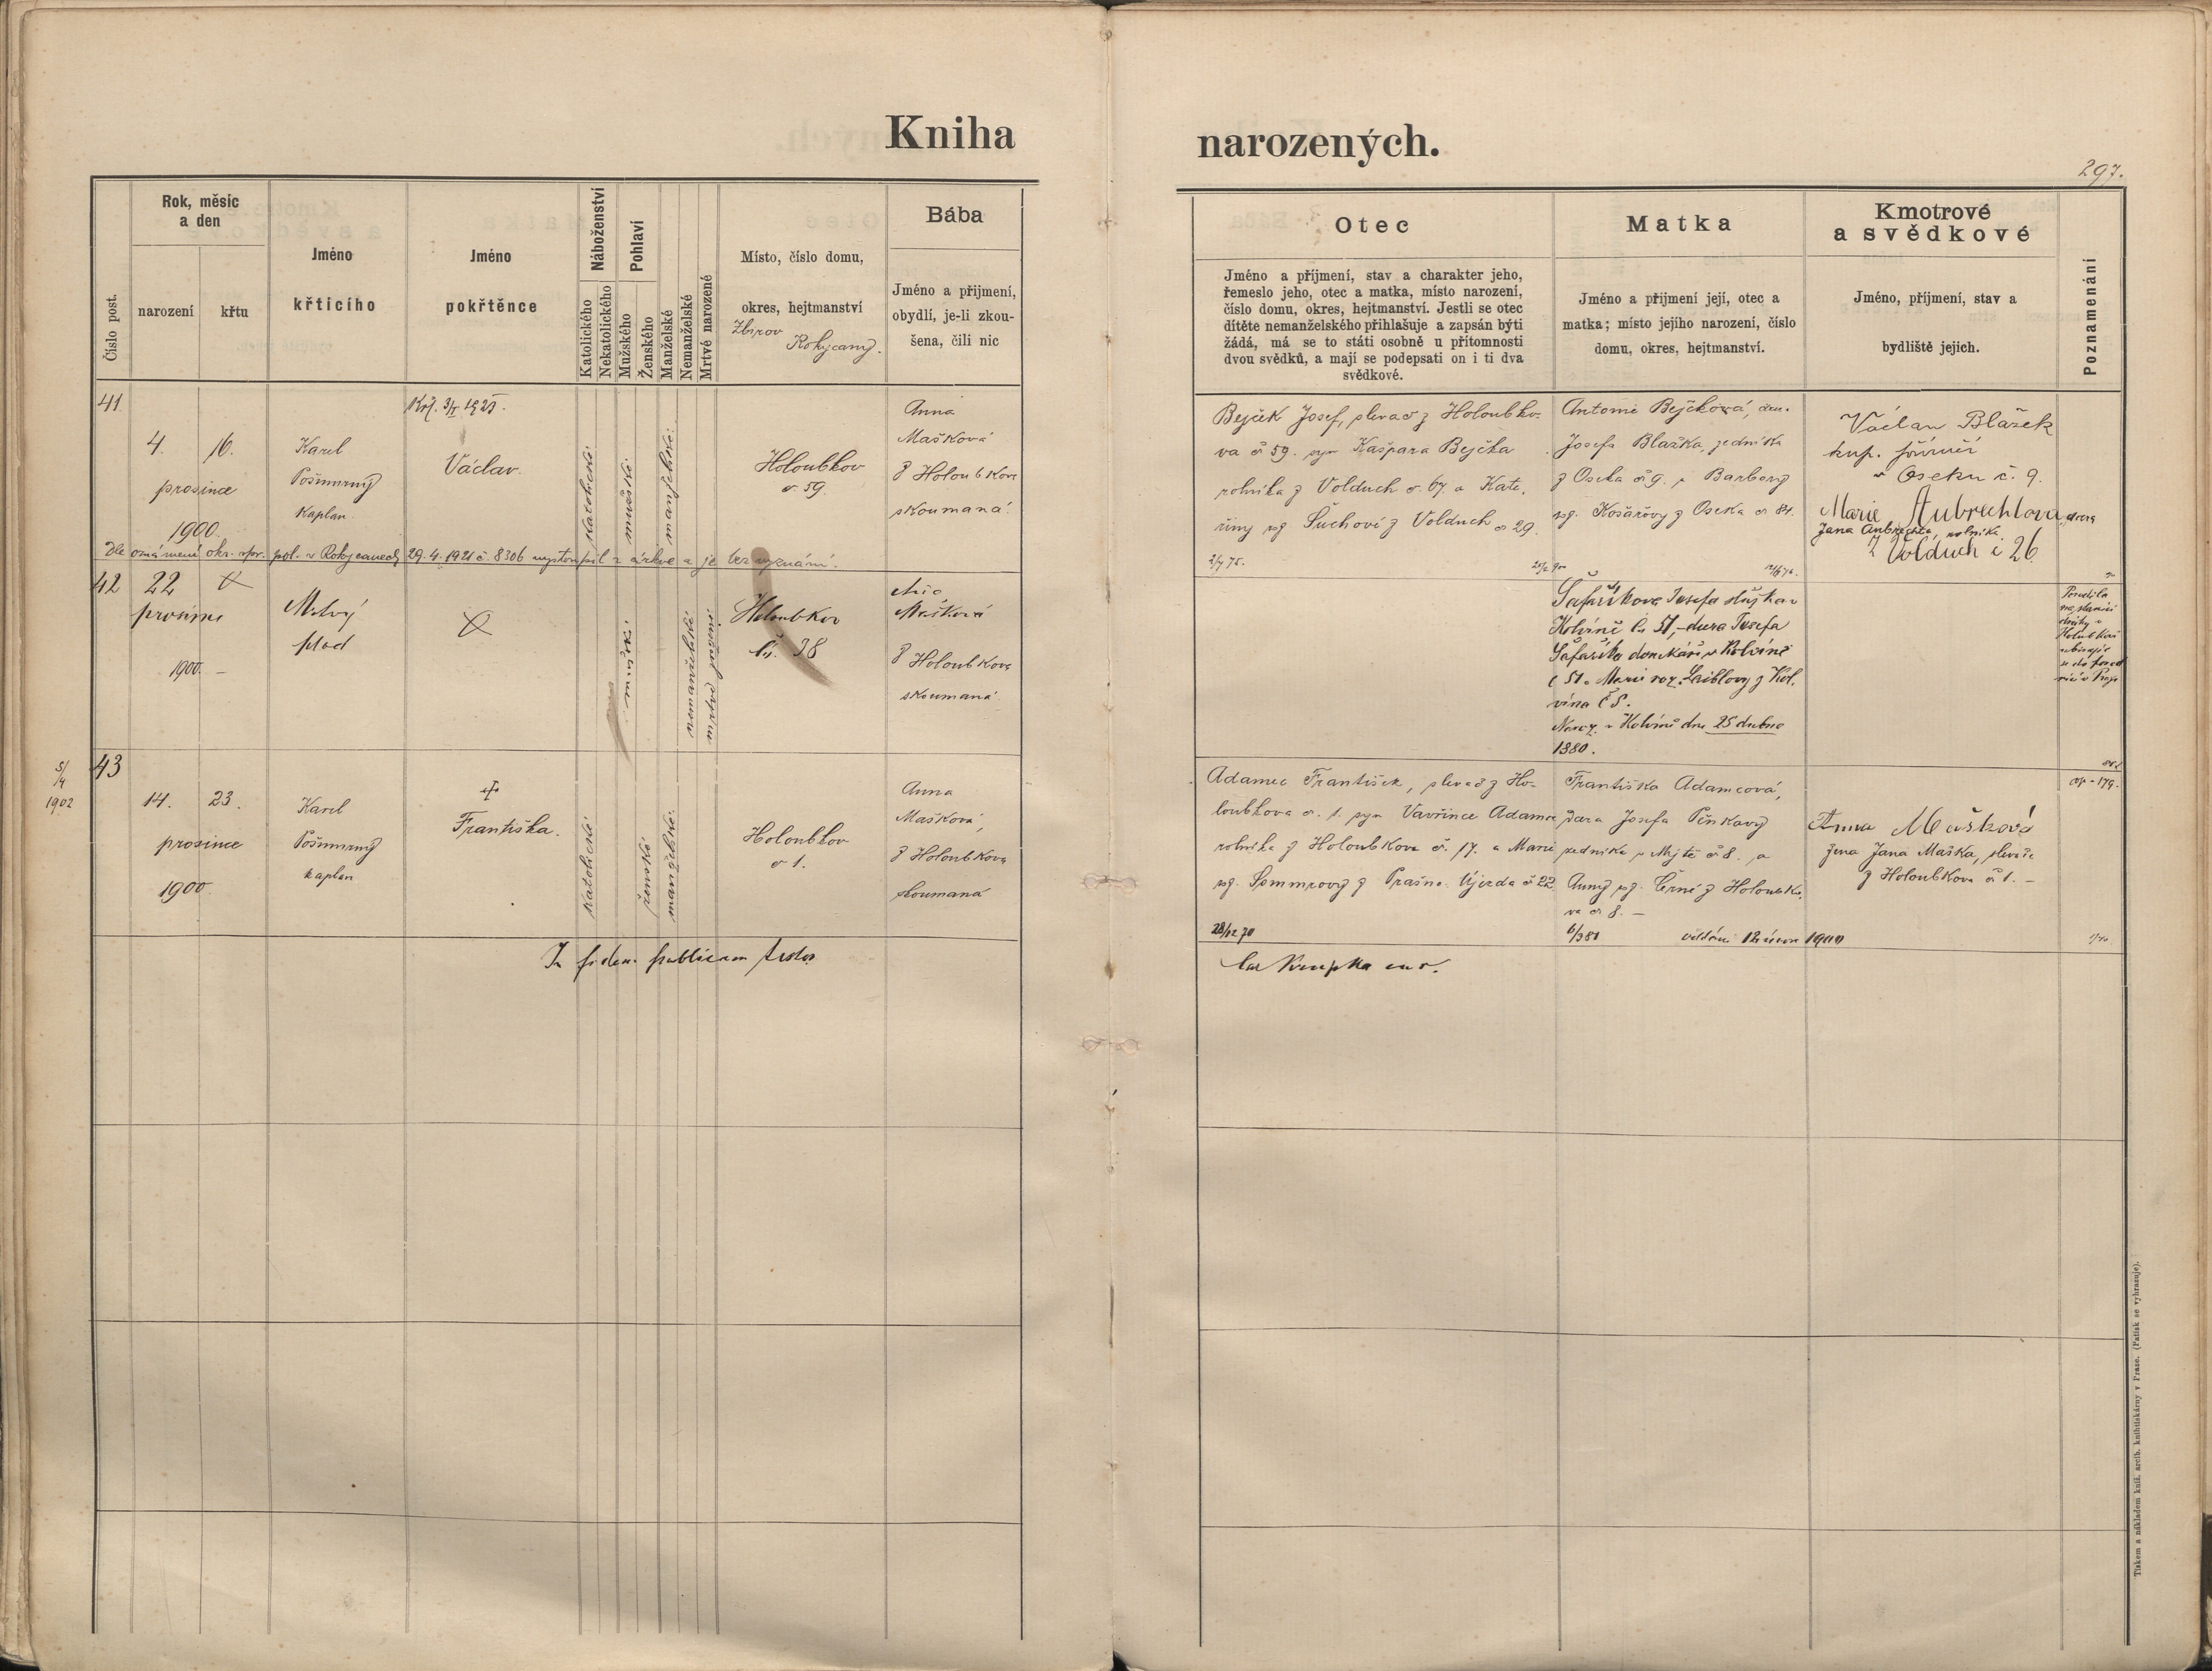 Kniha narozených.
297.
Číslo post.
Rok, měsíc
a den
narození
křtu
Jméno
křticího
Jméno
pokřtěnce
Náboženství
Katolického
Nekatolického
Pohlaví
Mužského
Ženského
Manželské
Nemanželské
Mrtvé narozené
Místo, číslo domu,
okres, hejtmanství
Zbirov
Rokycany.
Bába
Jméno a přijmení,
obydlí, je-li zkou-
šena, čili nic
Otec
Jméno a příjmení, stav a charakter jeho,
řemeslo jeho, otec a matka, místo narození,
číslo domu, okres, hejtmanství. Jestli se otec
dítěte nemanželského přihlašuje a zapsán býti
žádá, má se to státi osobně u přítomnosti
dvou svědků, a mají se podepsati on i ti dva
svědkové.
Matka
Jméno a přijmení její, otec a
matka; místo jejího narození, číslo
domu, okres, hejtmanství.
Kmotrové
a svědkové
Jméno, příjmení, stav a
bydliště jejich.
Poznamenání
41
4. 16.
prosince
1900.
Karel
Pošmurný
Kaplan
Václav.
katolické
mužské
manželské
Holoubkov
č. 59.
Anna
Mašková
z Holoubkova
zkoumaná.
Bejček Josef, slevač z Holoubko-
va č 59. syn Kašpara Bejčka
rolníka z Volduch č. 67. a Kate-
řiny roz. Suchové z Volduch č 29.
Antonie Bejčková, dcera
Josefa Blažka, zedníka
z Oseka č 9. a Barbory
roz. Košařovy z Oseka č 84.
Václav Blažek
kup. příručí
v Oseku č. 9.
Marie Aubrechtova dcera
Jana Aubrechta, rolníka
z Volduch č 26.
Dle oznámení okr. spr. pol. v Rokycanech 29. 4. 1921 č 8306 vystoupil z církve a je bez vyznání.
42
22
prosince
1900. –
Mrtvý
plod
mužské
nemanželské
Holoubkov
č. 38
Mašková
z Holoubkova
zkoumaná
Šafaříková Josefa
Kolvíně č. 51, dcera Josefa
Šafaříka domkáře v Kolvíně
č 51 a Marie roz. Laiblovy z Kol-
vína č 5.
Naroz. v Kolvíně dne 25 dubna
1880.
Porodila
43
5/4
1902
14. 23.
prosince
1900.
Karel
Pošmurný
kaplan
Františka.
katolické
ženské
manželské
Holoubkov
č 1.
Anna
Mašková,
z Holoubkova
zkoumaná
Adamec František, slevač z Ho-
loubkova č. 1. syn Vavřince Adamce
rolníka z Holoubkova č. 17. a Marie
roz. Sommrovy z Prašno. Újezda č 22
28/12 70
Františka Adamcová,
dcera Josefa Pěnkavy
zedníka v Mýtě č 8. a
Anny roz. Černé z Holoubko-
va č 8. –
oddáni 12 února 1900
Anna Mašková
žena Jana Maška, slevače
z Holoubkova č 1. –
In fidem publicam testor
Tiskem a nákladem kníž. arcib. knihtiskárny v Praze. (Patisk se vyhrazuje).